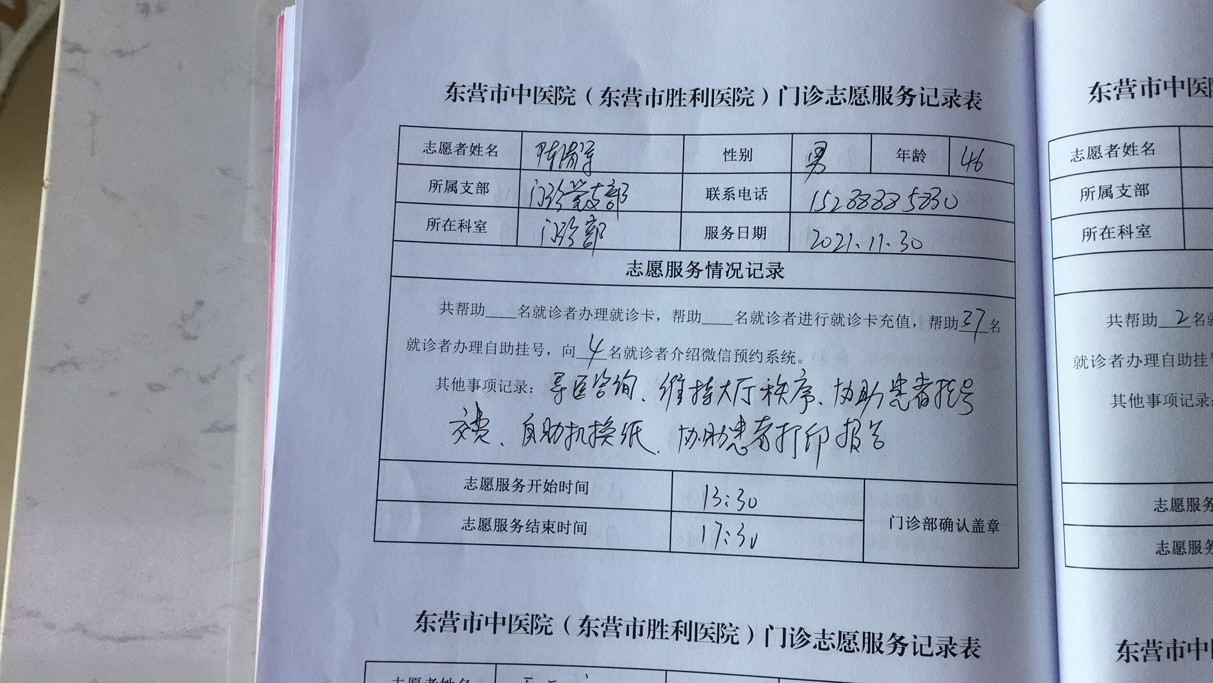 东营市中医院（东营市胜利医院）门诊志愿服务记录表
志愿者姓名 陈 性别 男 年龄 46
所属支部 门诊党支部 联系电话
所在科室 门诊部 服务日期 2021.11.30
志愿服务情况记录
共帮助____名就诊者办理就诊卡，帮助____名就诊者进行就诊卡充值，帮助37名
就诊者办理自助挂号，向4名就诊者介绍微信预约系统。
其他事项记录：导医咨询、维持大厅秩序、协助患者挂号
交费、自助机换纸、协助患者打印报告
志愿服务开始时间 13:30
志愿服务结束时间 17:30
门诊部确认盖章
东营市中医院（东营市胜利医院）门诊志愿服务记录表
志愿者姓名
东营市中医
志愿者姓名
所属支部
所在科室
共帮助2名
就诊者办理自助挂号
其他事项记录：
志愿服务
志愿服
东营市中